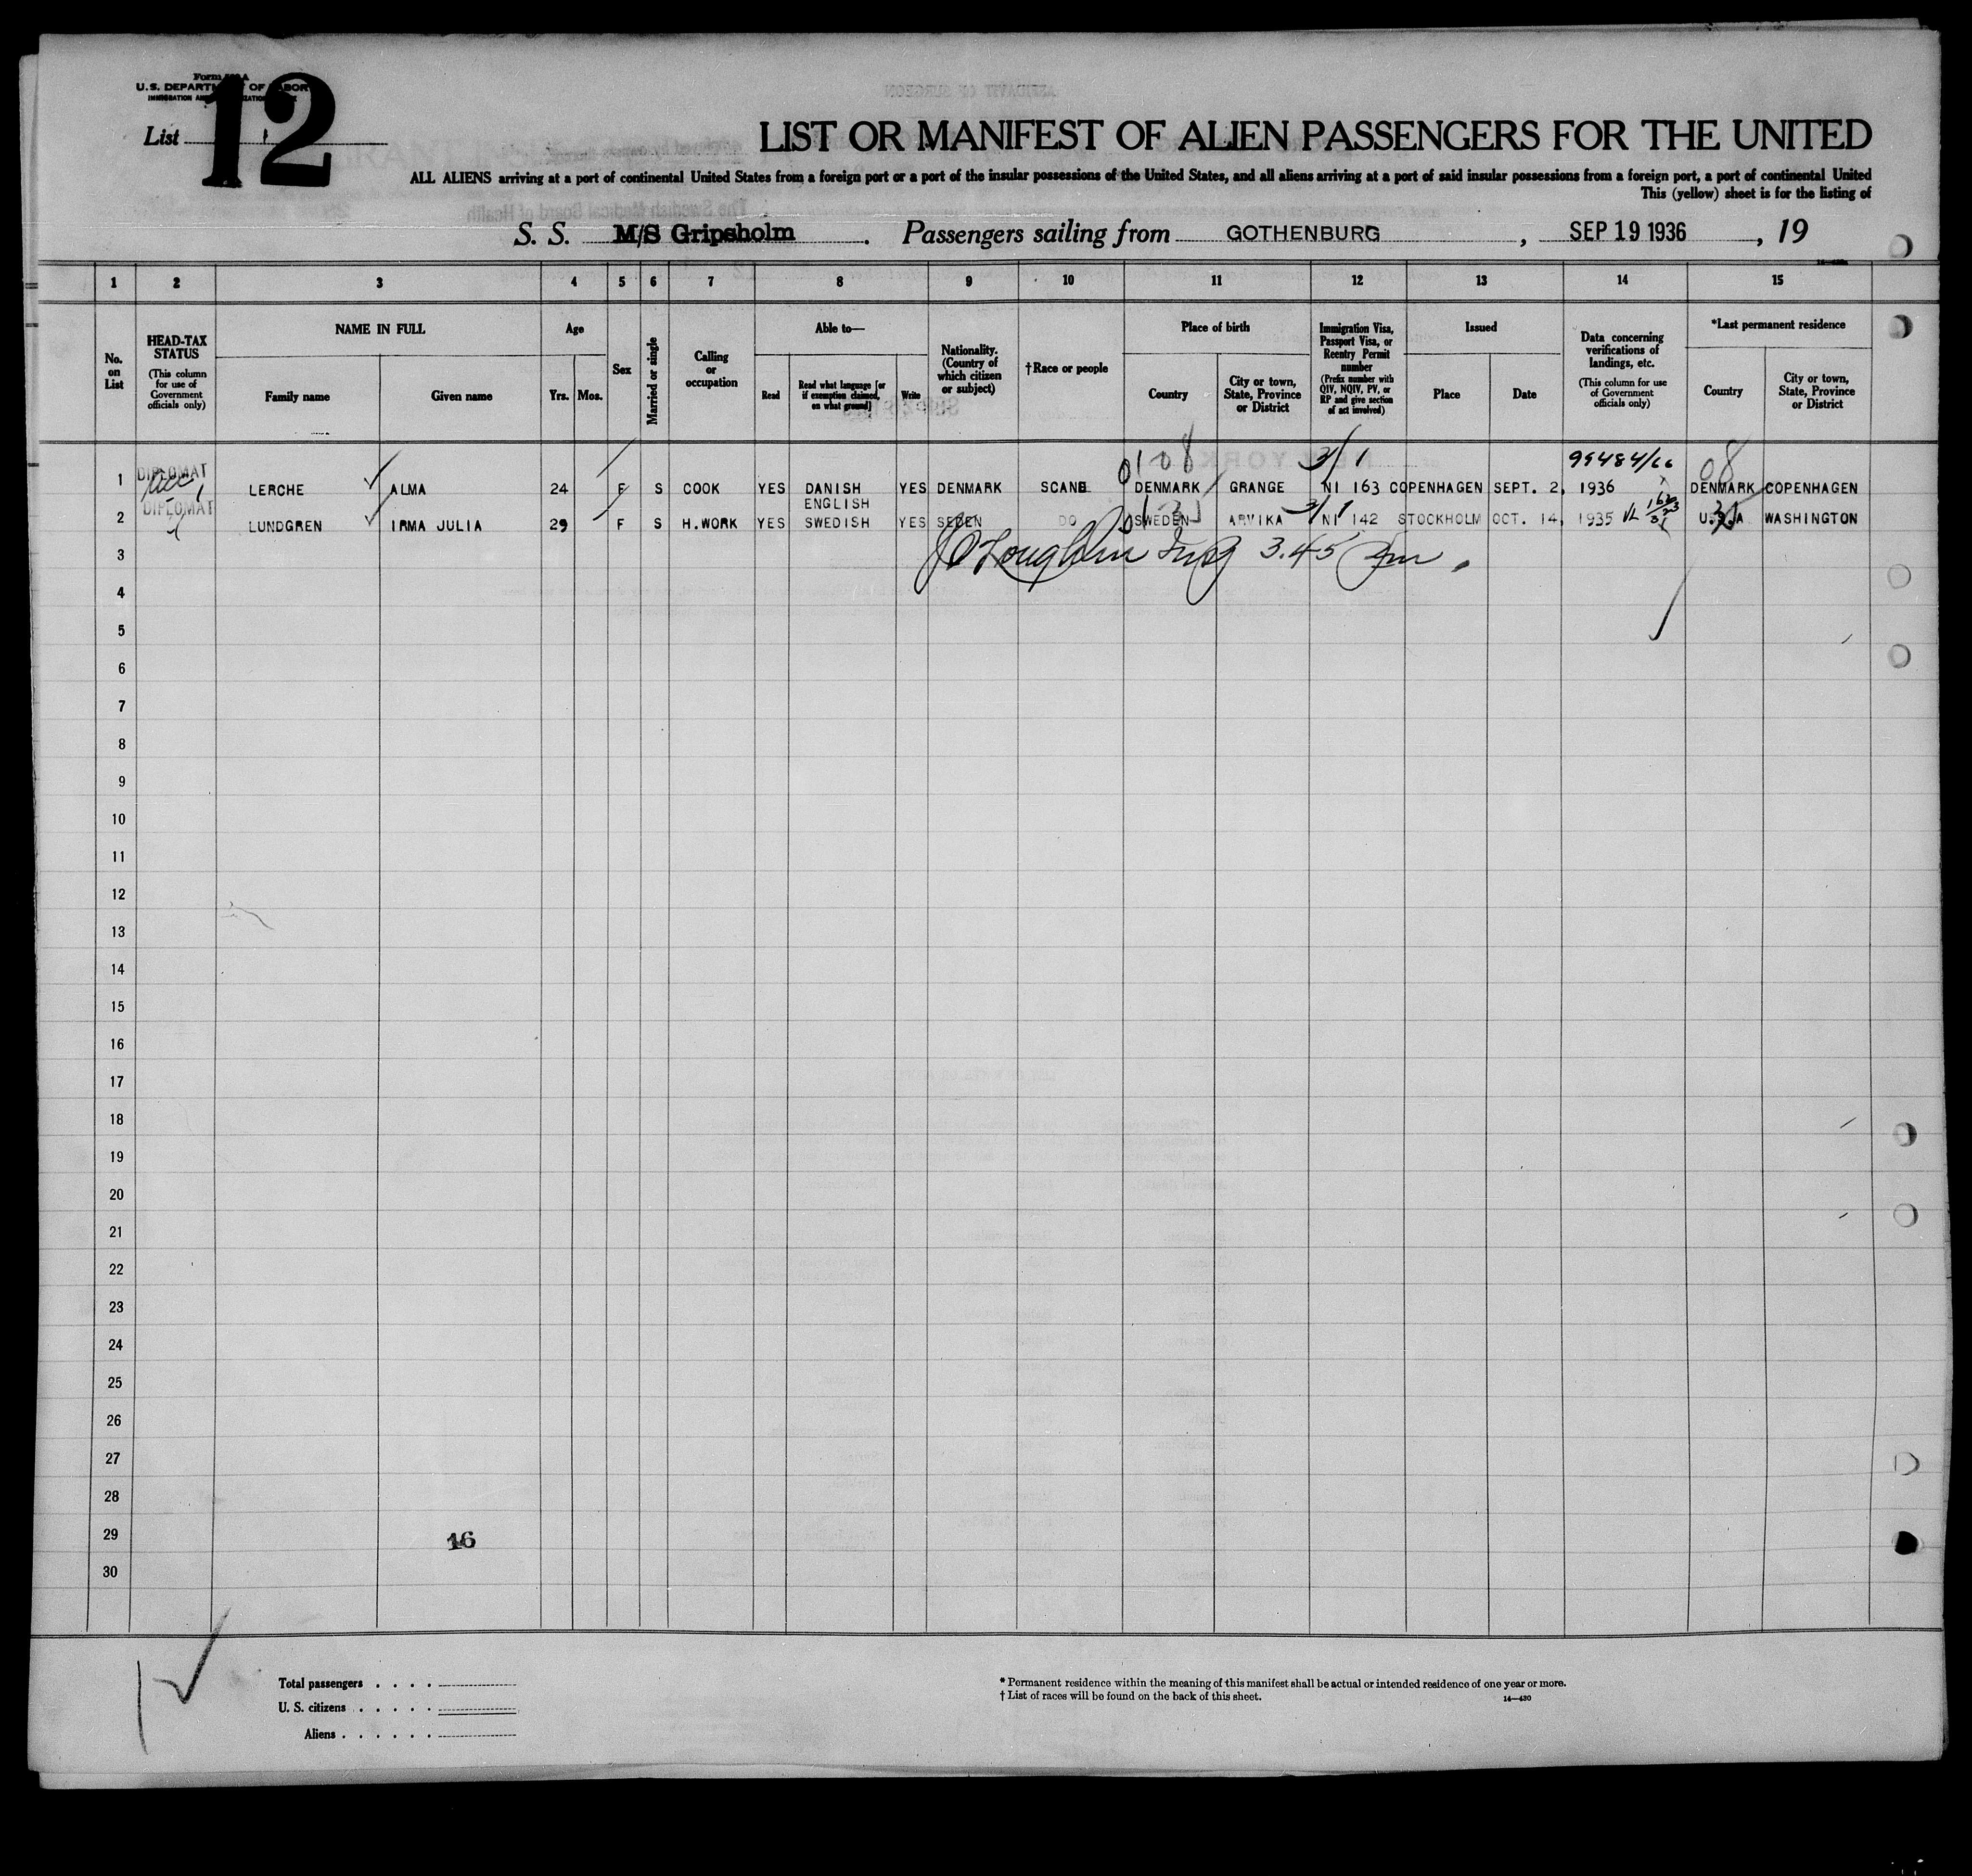 Form A
U.S. DEPARTMENT OF LABOR
12
List 1
LIST OR MANIFEST OF ALIEN PASSENGERS FOR THE UNITED
ALL ALIENS arriving at a port of continental United States from a foreign port or a port of the insular possessions of the United States, and all aliens arriving at a port of said insular possessions from a foreign port, a port of continental United
This (yellow) sheet is for the listing of
S. S. M/S Gripsholm. Passengers sailing from GOTHENBURG, SEP 19 1936, 19
1 2 3 4 5 6 7 8 9 10 11 12 13 14 15
No. on List
HEAD-TAX STATUS
(This column for use of Government officials only)
NAME IN FULL
Family name
Given name
Age
Yrs.
Mos.
Sex
Married or single
Calling or occupation
Able to—
Read
Read what language [or if exemption claimed, on what ground]
Write
Nationality. (Country of which citizen or subject)
†Race or people
Place of birth
Country
City or town, State, Province or District
Immigration Visa, Passport Visa, or Reentry Permit number
(Prefix number with QIV, NQIV, PV, or RP and give section of act involved)
Issued
Place
Date
Data concerning verifications of landings, etc.
(This column for use of Government officials only)
*Last permanent residence
Country
City or town, State, Province or District
DIPLOMAT 0108 3/1 99484/66 08
1 LERCHE ALMA 24 F S COOK YES DANISH YES DENMARK SCAND DENMARK GRANGE NI 163 COPENHAGEN SEPT. 2, 1936 DENMARK COPENHAGEN
DIPLOMAT ENGLISH 3/1
2 LUNDGREN IRMA JULIA 29 F S H.WORK YES SWEDISH YES SEDEN DO SWEDEN ARVIKA NI 142 STOCKHOLM OCT. 14, 1935 U.S.A WASHINGTON
3 3.45 pm.
4
5
6
7
8
9
10
11
12
13
14
15
16
17
18
19
20
21
22
23
24
25
26
27
28
29 16
30
Total passengers . . . .
U. S. citizens . . . . .
Aliens . . . . . .
* Permanent residence within the meaning of this manifest shall be actual or intended residence of one year or more.
† List of races will be found on the back of this sheet. 14—430